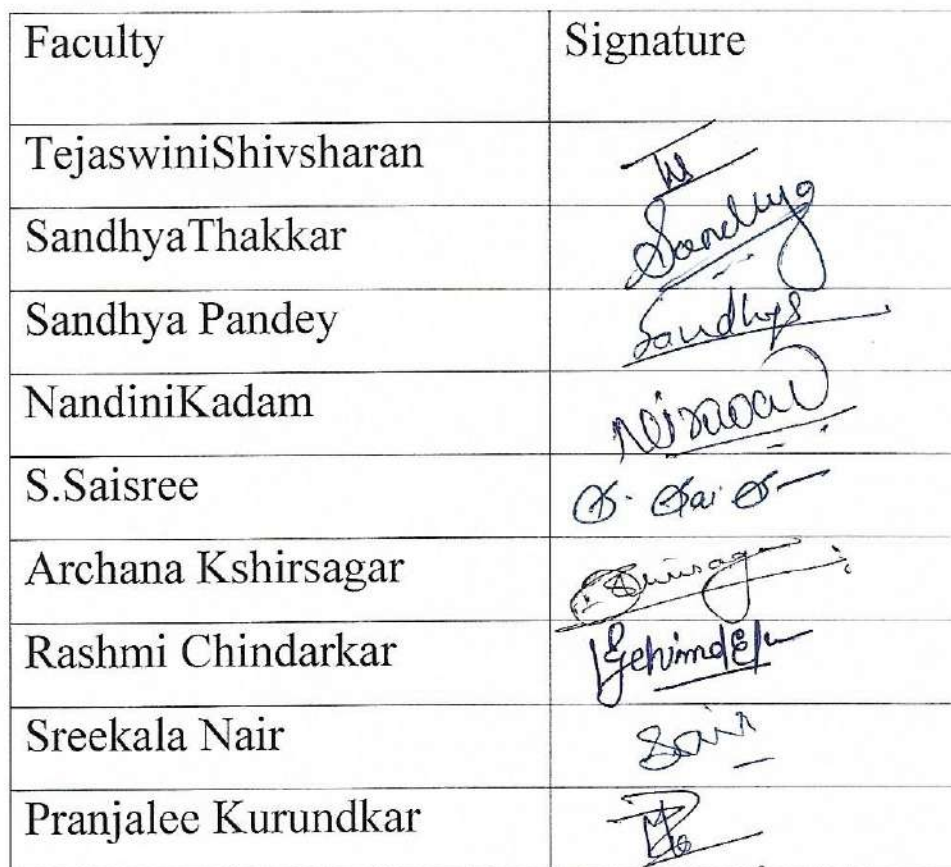 Faculty Signature
TejaswiniShivsharan
SandhyaThakkar Sandhya
Sandhya Pandey Sandhya
NandiniKadam
S.Saisree S. Sai S
Archana Kshirsagar
Rashmi Chindarkar
Sreekala Nair
Pranjalee Kurundkar